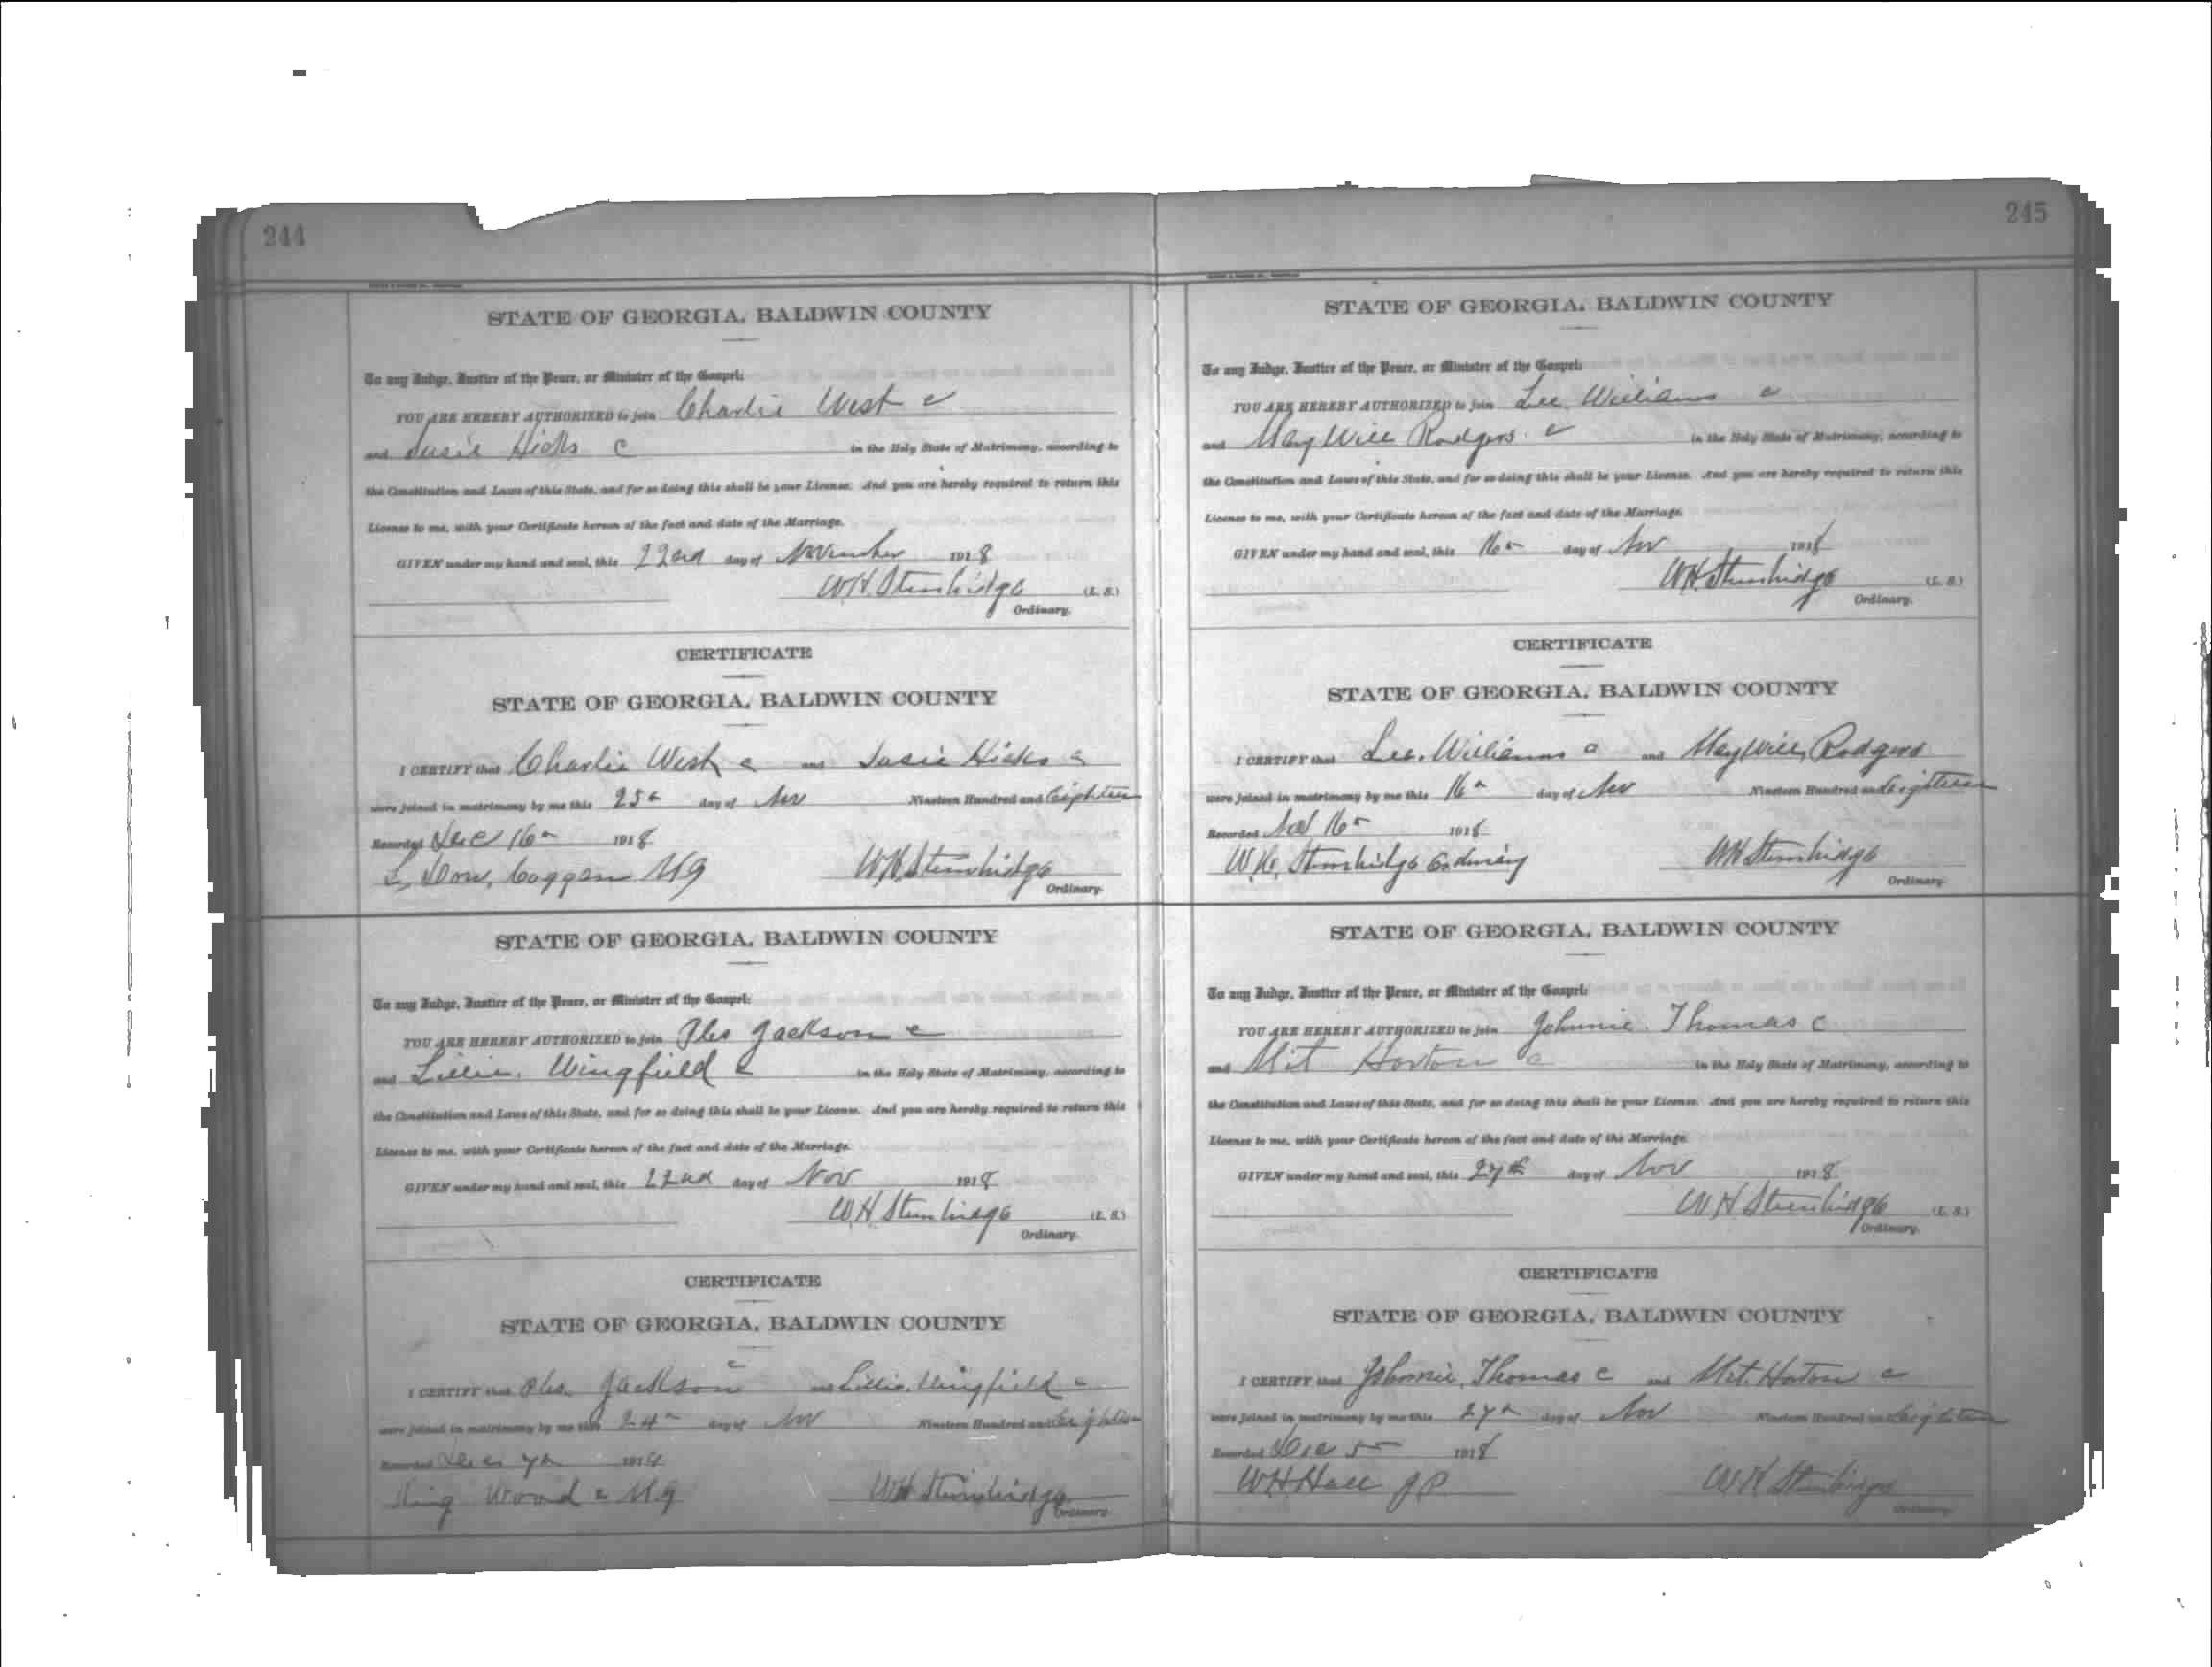 244
STATE OF GEORGIA, BALDWIN COUNTY
To any Judge, Justice of the Peace, or Minister of the Gospel:
YOU ARE HEREBY AUTHORIZED to join Charlie West c
and Susie Hicks c in the Holy State of Matrimony, according to
the Constitution and Laws of this State, and for so doing this shall be your License. And you are hereby required to return this
License to me, with your Certificate hereon of the fact and date of the Marriage.
GIVEN under my hand and seal, this 22nd day of November 1918
W.H. Stembridge (L. S.)
Ordinary.
CERTIFICATE
STATE OF GEORGIA, BALDWIN COUNTY
I CERTIFY that Charlie West c and Susie Hicks c
were joined in matrimony by me this 25 day of Nov Nineteen Hundred and Eighteen
Recorded Dec 16 1918
Dow, Coggan MG W.H. Stembridge
Ordinary.
STATE OF GEORGIA, BALDWIN COUNTY
To any Judge, Justice of the Peace, or Minister of the Gospel:
YOU ARE HEREBY AUTHORIZED to join Jackson c
and Lillie Wingfield c in the Holy State of Matrimony, according to
the Constitution and Laws of this State, and for so doing this shall be your License. And you are hereby required to return this
License to me, with your Certificate hereon of the fact and date of the Marriage.
GIVEN under my hand and seal, this 22nd day of Nov 1918
W.H Stembridge (L. S.)
Ordinary.
CERTIFICATE
STATE OF GEORGIA, BALDWIN COUNTY
I CERTIFY that Jackson c and Lillie Wingfield c
were joined in matrimony by me this 24 day of Nov Nineteen Hundred and Eighteen
Recorded Dec 7 1918
King Wood c MG WH Stembridge
Ordinary.
245
STATE OF GEORGIA, BALDWIN COUNTY
To any Judge, Justice of the Peace, or Minister of the Gospel:
YOU ARE HEREBY AUTHORIZED to join Lee Williams c
and May Will Rodgers c in the Holy State of Matrimony, according to
the Constitution and Laws of this State, and for so doing this shall be your License. And you are hereby required to return this
License to me, with your Certificate hereon of the fact and date of the Marriage.
GIVEN under my hand and seal, this 16 day of Nov 1918
WH Stembridge (L. S.)
Ordinary.
CERTIFICATE
STATE OF GEORGIA, BALDWIN COUNTY
I CERTIFY that Lee Williams c and May Will Rodgers
were joined in matrimony by me this 16 day of Nov Nineteen Hundred and Eighteen
Recorded Nov 16 1918
W.H. Stembridge Ordinary WH Stembridge
Ordinary
STATE OF GEORGIA, BALDWIN COUNTY
To any Judge, Justice of the Peace, or Minister of the Gospel:
YOU ARE HEREBY AUTHORIZED to join Johnnie Thomas c
and Mit Horton c in the Holy State of Matrimony, according to
the Constitution and Laws of this State, and for so doing this shall be your License. And you are hereby required to return this
License to me, with your Certificate hereon of the fact and date of the Marriage.
GIVEN under my hand and seal, this 27th day of Nov 1918
W.H Stembridge (L. S.)
Ordinary.
CERTIFICATE
STATE OF GEORGIA, BALDWIN COUNTY
I CERTIFY that Johnnie Thomas c and Mit Horton c
were joined in matrimony by me this 27 day of Nov Nineteen Hundred and Eighteen
Recorded Dec 5 1918
WH Hall JP W H Stembridge
Ordinary.